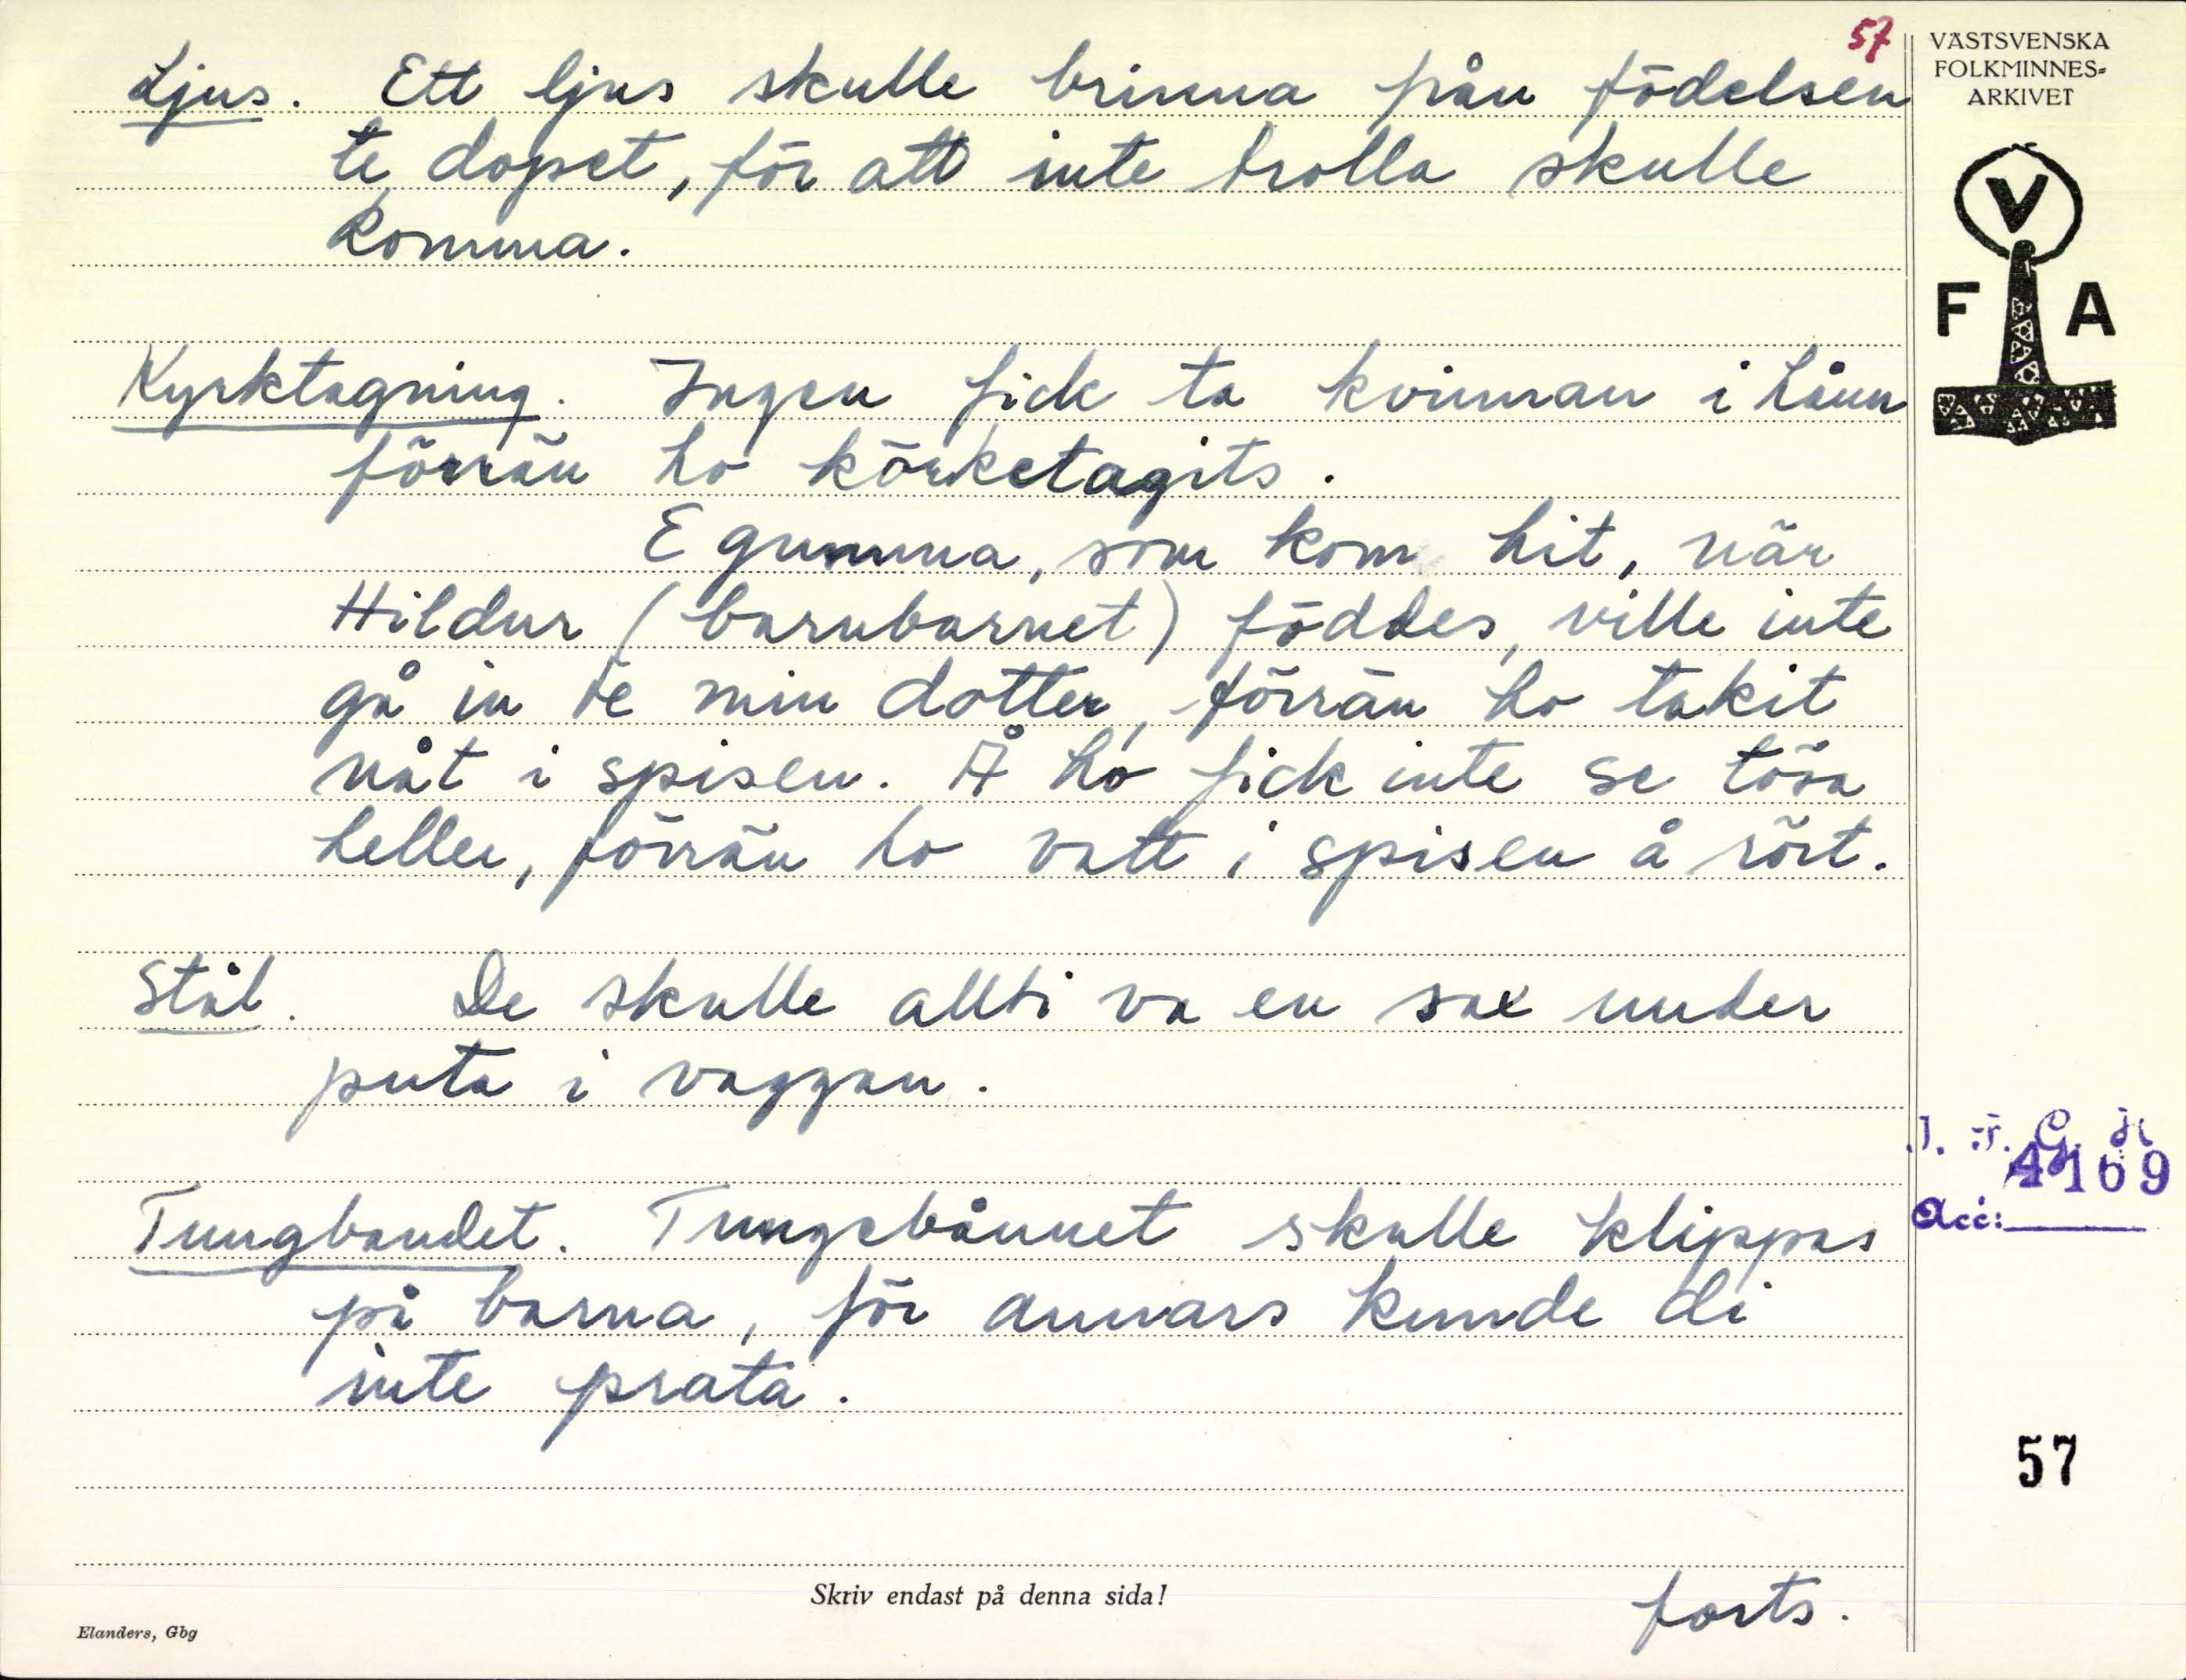 57
VÄSTSVENSKA
FOLKMINNES-
ARKIVET
V
F A
Ljus. Ett ljus skulle brinna från födelsen
te dopet, för att inte trolla skulle
komma.
Kyrktagning. Ingen fick ta kvinnan i hånn
förrän ho körketagits.
E gumma, som kom hit, när
Hildur (barnbarnet) föddes, ville inte
gå in te min dotter, förrän ho takit
nåt i spisen. Å ho fick inte se tösa
heller, förrän ho vatt i spisen å rört.
Stål. De skulle allti va en sax under
puta i vaggan.
Tungbandet. Tungebånnet skulle klippas
på barna, för annars kunde di
inte prata.
I. F. G. H
4169
Acc:
57
Skriv endast på denna sida!
forts.
Elanders, Gbg